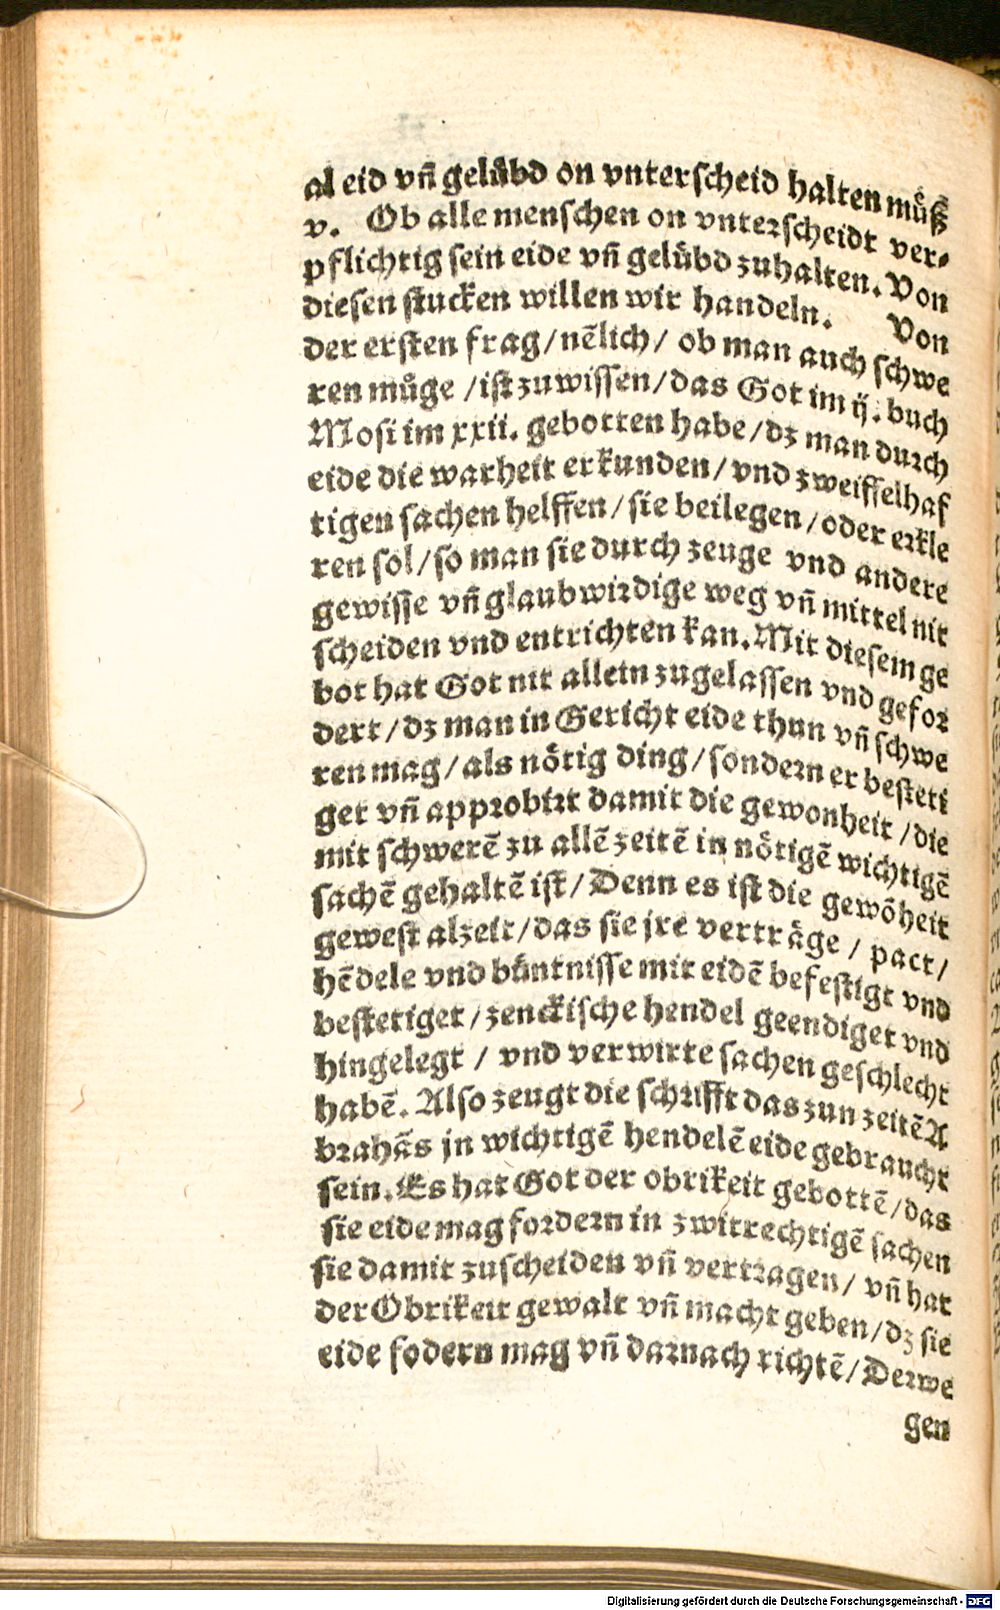 al eid vñ gelübd on vnterscheid halten müß̃
v. Ob alle menschen on vnterscheidt ver-
pflichtig sein eide vñ gelübd zuhalten. Von
diesen stucken willen wir handeln. Von
der ersten frag/ nẽlich/ ob man auch schwe
ren můge /ist zuwissen/ das Got im ij. buch
Mosi im xxii. gebotten habe/ dz man durch
eide die warheit erkunden/ vnd zweiffelhaf
tigen sachen helffen/ sie beilegen/ oder erkle
ren sol/ so man sie durch zeuge vnd andere
gewisse vñ glaubwirdige weg vñ mittel nit
scheiden vnd entrichten kan. Mit diesem ge
bot hat Got nit allein zugelassen vnd gefor
dert/ dz man in Gericht eide thun vñ schwe
ren mag/ als nötig ding/ sondern er besteti
get vñ approbirt damit die gewonheit /die
mit schwerẽ zu allẽ zeitẽ in nötigẽ wichtigẽ
sachẽ gehaltẽ ist/ Denn es ist die gewõheit
gewest alzeit/ das sie jre verträge / pact/
hẽdele vnd büntnisse mit eidẽ befestigt vnd
bestetiget /zenckische hendel geendiget vnd
hingelegt / vnd verwirte sachen geschlecht
habẽ. Also zeugt die schrifft das zun zeitẽ A
brahãs jn wichtigẽ hendelẽ eide gebraucht
sein. Es hat Got der obrikeit gebottẽ/ das
sie eide mag fordern in zwitrechtigẽ sachen
sie damit zuscheiden vñ vertragen/ vñ hat
der Obrikeit gewalt vñ macht geben/ dz sie
eide fodern mag vñ darnach richtẽ/ Derwe
gen
Digitalisierung gefördert durch die Deutsche Forschungsgemeinschaft - DFG